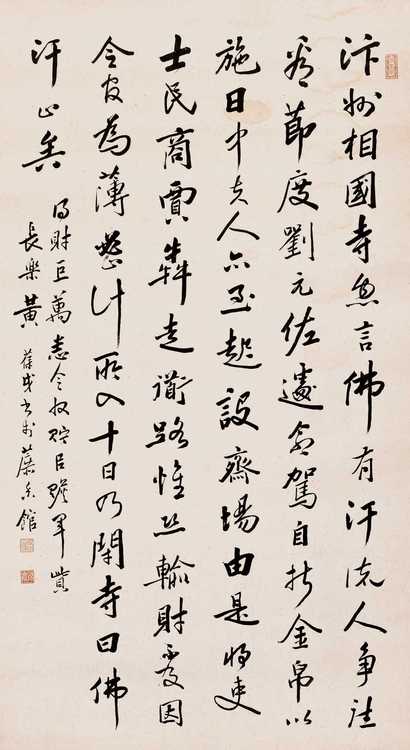 汴州相國寺忽言佛有汗流人争往
看節度劉元佐遽命駕自持金帛以
施日中其人亦至起設齋場由是将吏
士民商賈犇走衢路惟恐輸財受因
令官為薄卷計所入十日乃閉寺曰佛
汗止矣
得財巨萬悉令收貯以贍軍費
長樂黄葆戉書於蔗香館